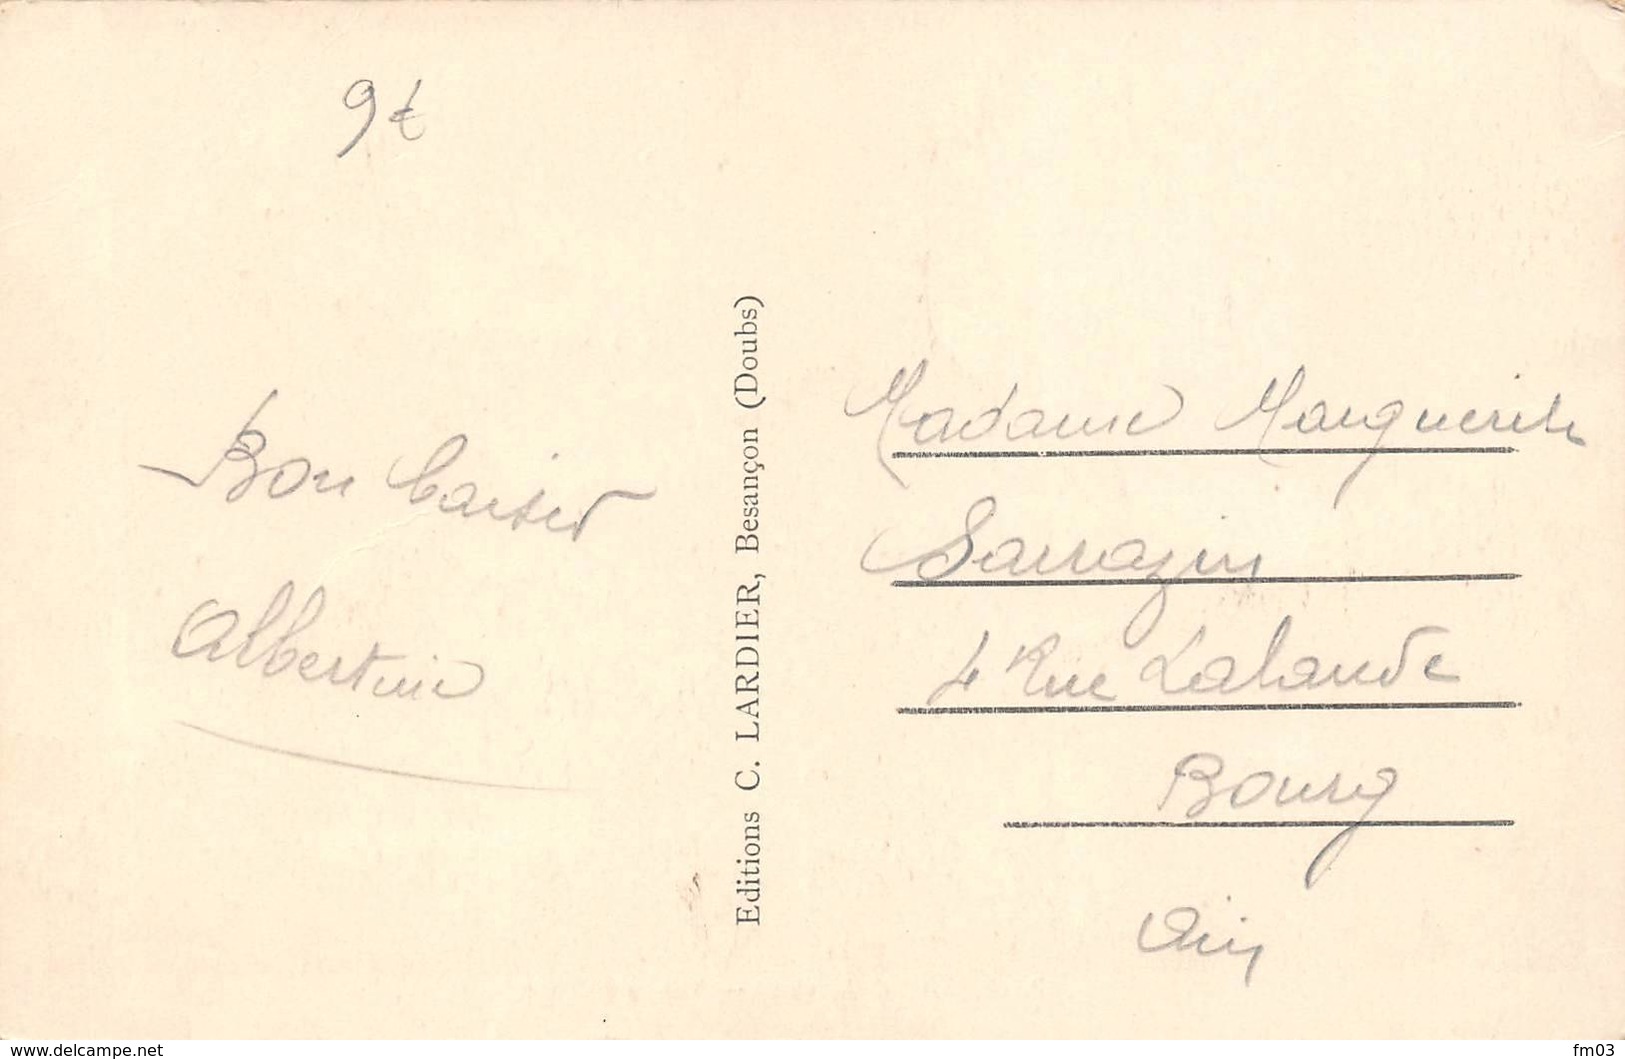 9€
Bon baiser
Albertine
Editions C. LARDIER, Besançon (Doubs)
Madame Marguerite
Sarrazin
4 Rue Lalande
Bourg
Ain
www.delcampe.net
fm03